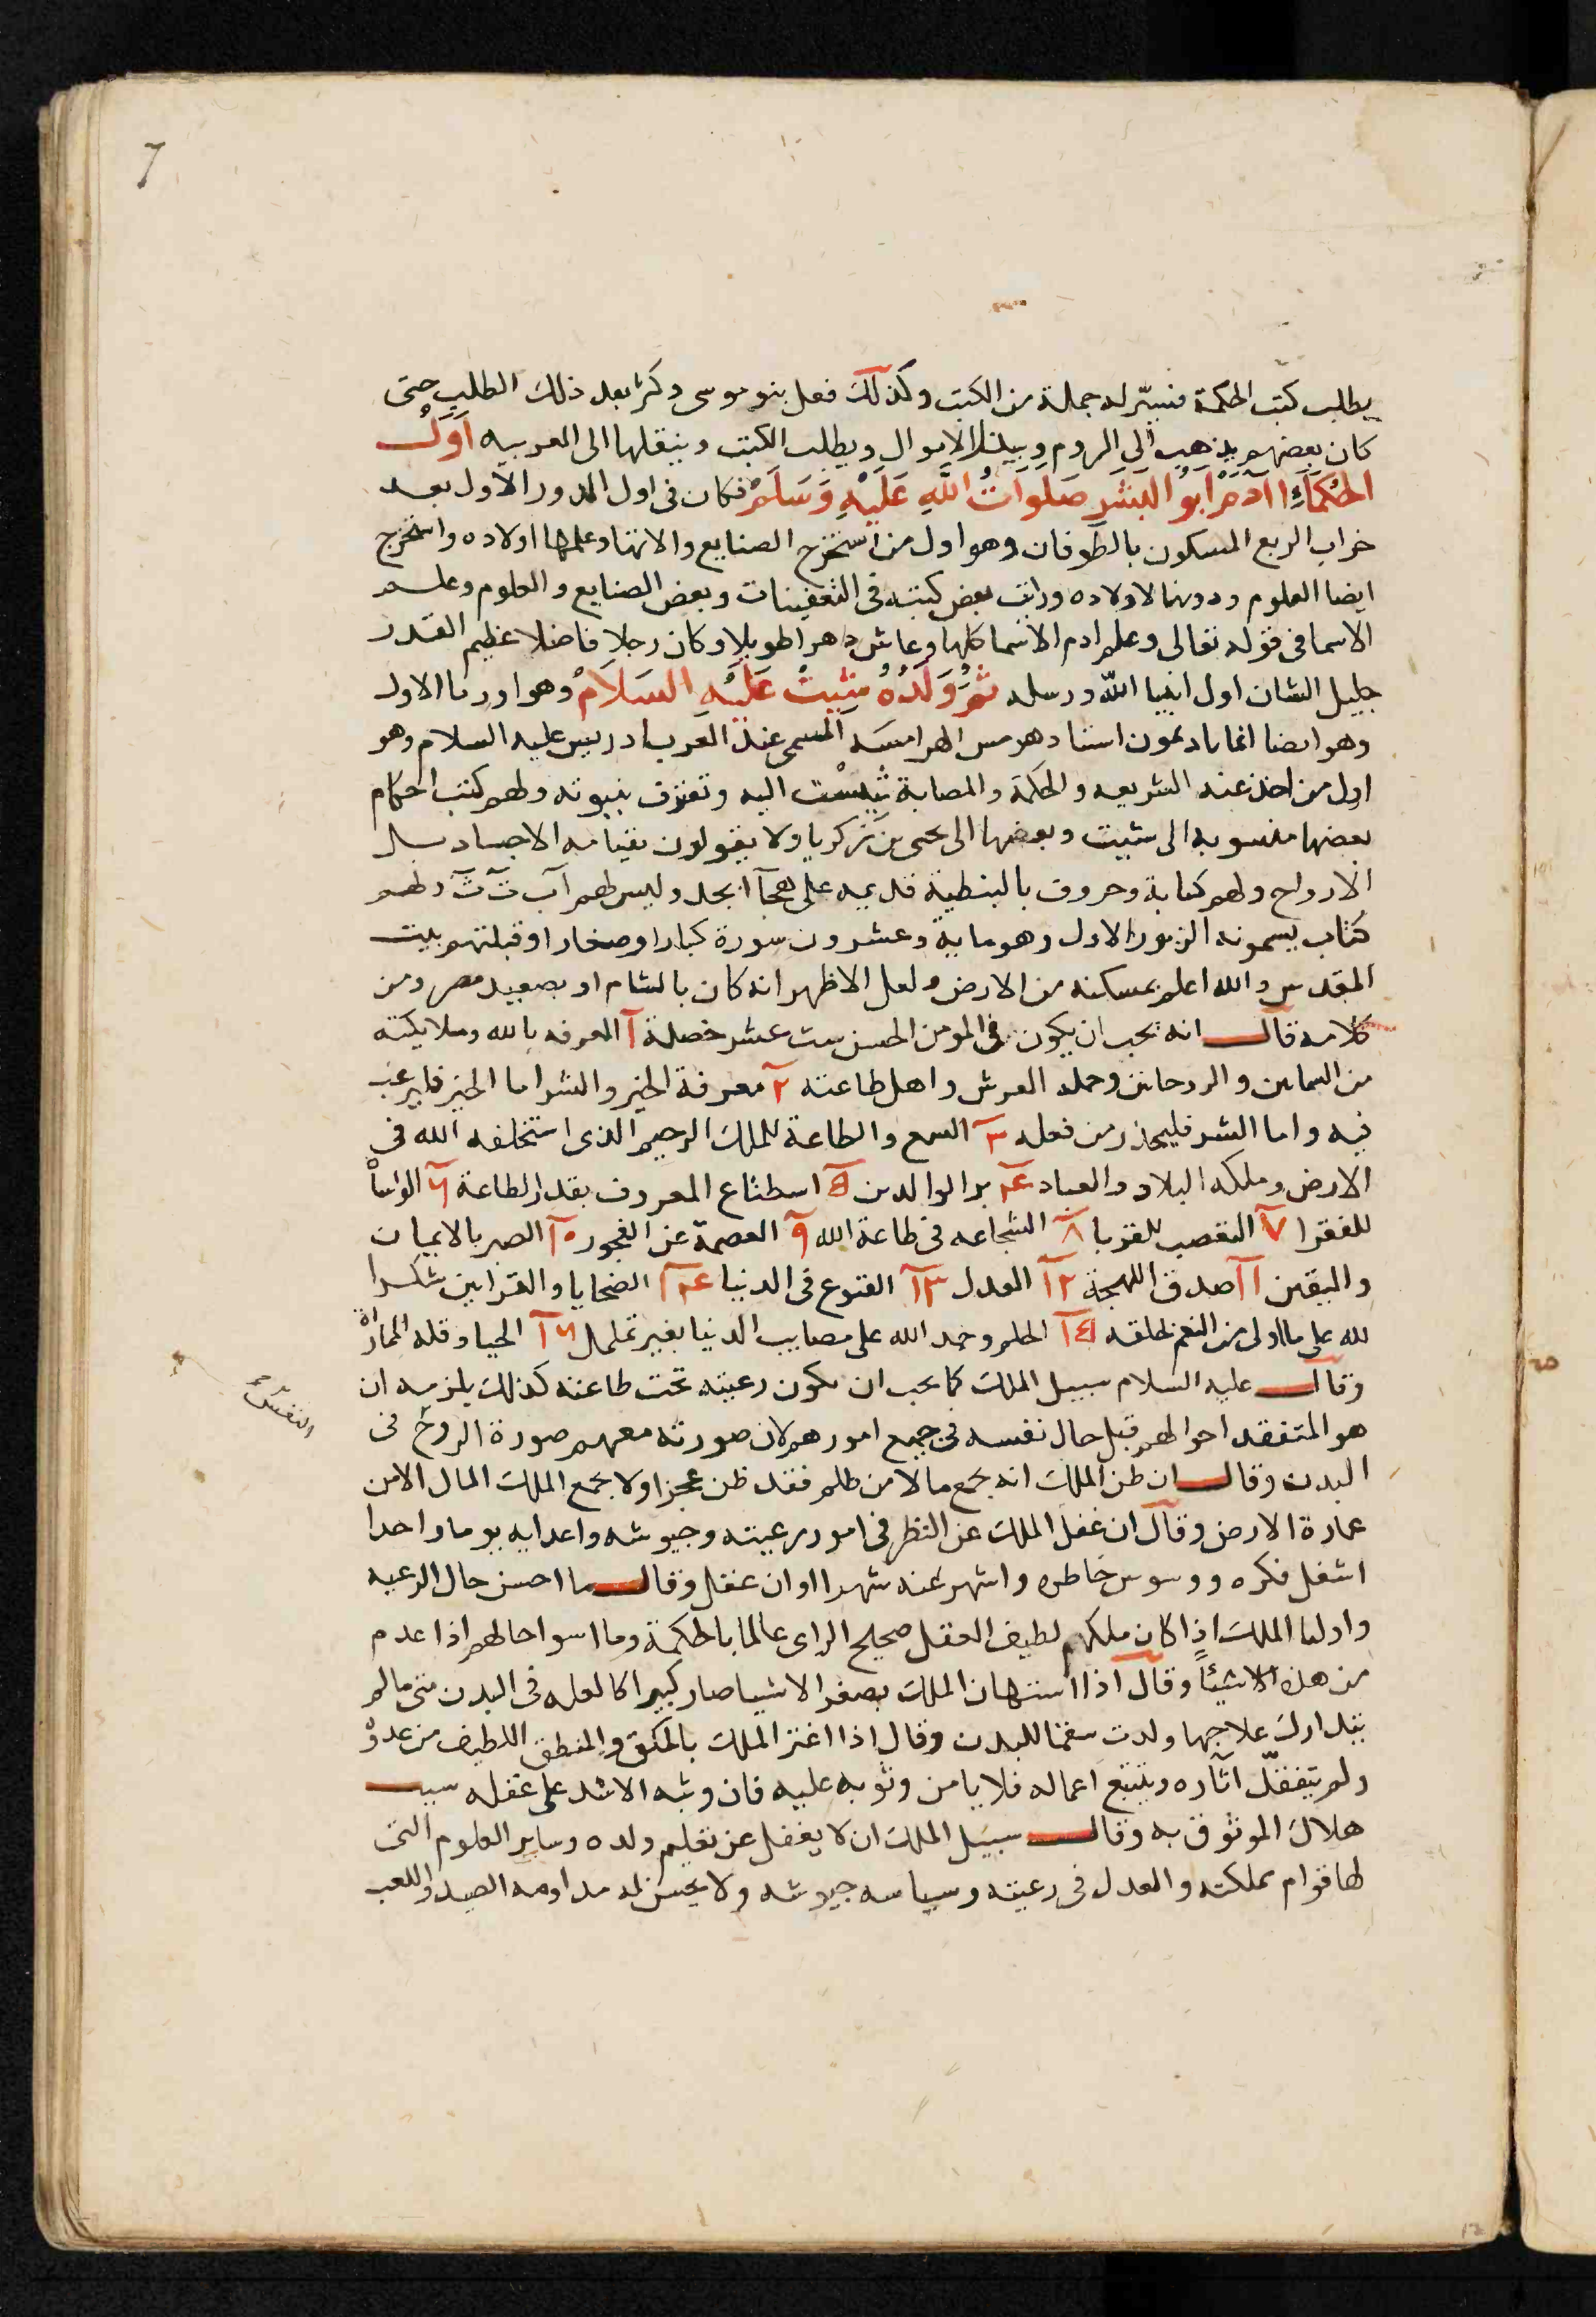 7
يطلب كتب الحكمة فيسّر له جملة من الكتب وكذلك فعل بنو موسى وكثر بعد ذلك الطلب حتى
كان بعضهم يذهب الى الروم ويبذل الاموال ويطلب الكتب وينقلها الى العربيه اول
الحكماء ادم ابو البشر صلوات الله عليه وسلم فكان فى اول الدور الاول بعد
خراب الربع المسكون بالطوفان وهو اول من استخرج الصنايع والاتها وعلمها اولاده واستخرج
ايضا العلوم ودونها لاولاده ورايت بعض كتبه فى التعفينات وبعض الصنايع والعلوم وعلم
الاسما فى قوله تعالى وعلم ادم الاسما كلها وعاش دهرا طويلا وكان رجلا فاضلا عظيم القدر
جليل الشان اول انبيا الله ورسله ثم ولده شيث عليه السلام وهو اوريا الاول
وهو ايضا اغاثاديمون استاد هرمس الهرامسه المسمى عند العرب ادريس عليه السلام وهو
اول من اخذ عنه الشريعه والحكمة والصابة تنسب اليه وتعترف بنبوته ولهم كتب احكام
بعضها منسوبه الى شيث وبعضها الى يحيى بن زكريا ولا يقولون بقيامه الاجساد بل
الارواح ولهم كتابة وحروف بالنبطية قديمه على هجا ابجد وليس لهم ا ب ت ث ولهم
كتاب يسمونه الزبور الاول وهو ماية وعشرون سورة كبارا وصغارا وقبلتهم بيت
المقدس والله اعلم بمسكنه من الارض ولعل الاظهر انه كان بالشام او بصعيد مصر ومن
كلامه قال انه يجب ان يكون فى المومن الحسن ست عشر خصلة ا المعرفه بالله وملايكته
من السمايين والروحانين وحمله العرش واهل طاعته ٢ معرفة الخير والشر اما الخير فليرغب
فيه واما الشر فليحذر من فعله ٣ السمع والطاعة للملك الرحيم الذى استخلفه الله فى
الارض وملكه البلاد والعباد ع بر الوالدين ٥ اسطناع المعروف بقدر الطاعة ٦ المواساة
للفقرا ٧ التعصب للغربا ٨ الشجاعه فى طاعة الله ٩ العصمة عن الفجور ١٠ الصبر بالايمان
واليقين ١١ صدق اللهجة ١٢ العدل ١٣ القنوع فى الدنيا ١٤ الضحايا والقرابين شكرا
لله على ما اولى من النعم لخلقه ١٥ الحلم وحمد الله على مصايب الدنيا بغير تململ ١٦ الحيا وقله المماراة
وقال عليه السلام سبيل الملك كما يجب ان يكون رعيته تحت طاعته كذلك يلزمه ان
هو المتفقد احوالهم قبل حال نفسه فى جميع امورهم لان صورته معهم صورة الروح فى
النفس
البدن وقال ان ظن الملك انه يجمع مالا من ظلم فقد ظن عجزا ولا يجمع الملك المال الا من
عمارة الارض وقال ان غفل الملك عن النظر فى امور رعيته وجيوشه واعدايه يوما واحدا
اشغل فكره ووسوس خاطره واشهر عنه شهرا اوان غفل وقال ما احسن حال الرعيه
واوليا الملك اذا كان ملكهم لطيف العقل صحيح الراى عالما بالحكمة وما اسوا حالهم اذا عدم
من هذه الاشيئاً وقال اذا استهان الملك بصغر الاشيا صار كبيرا كالعله فى البدن متى ما لم
يتدارك علاجها ولدت سقما للبدن وقال اذا اغتر الملك بالملق والمنطق اللطيف من عدوّ
ولم يتفقد اثاره ويتتبع اعماله فلا يامن وثوبه عليه فان وثبه الاشد على غفله سبب
هلاك الموثوق به وقال سبيل الملك ان لا يغفل عن تعليم ولده وساير العلوم التى
لها قوام مملكته والعدل فى رعيته وسياسه جيوشه ولا يحسن له مداومه الصيد واللعب